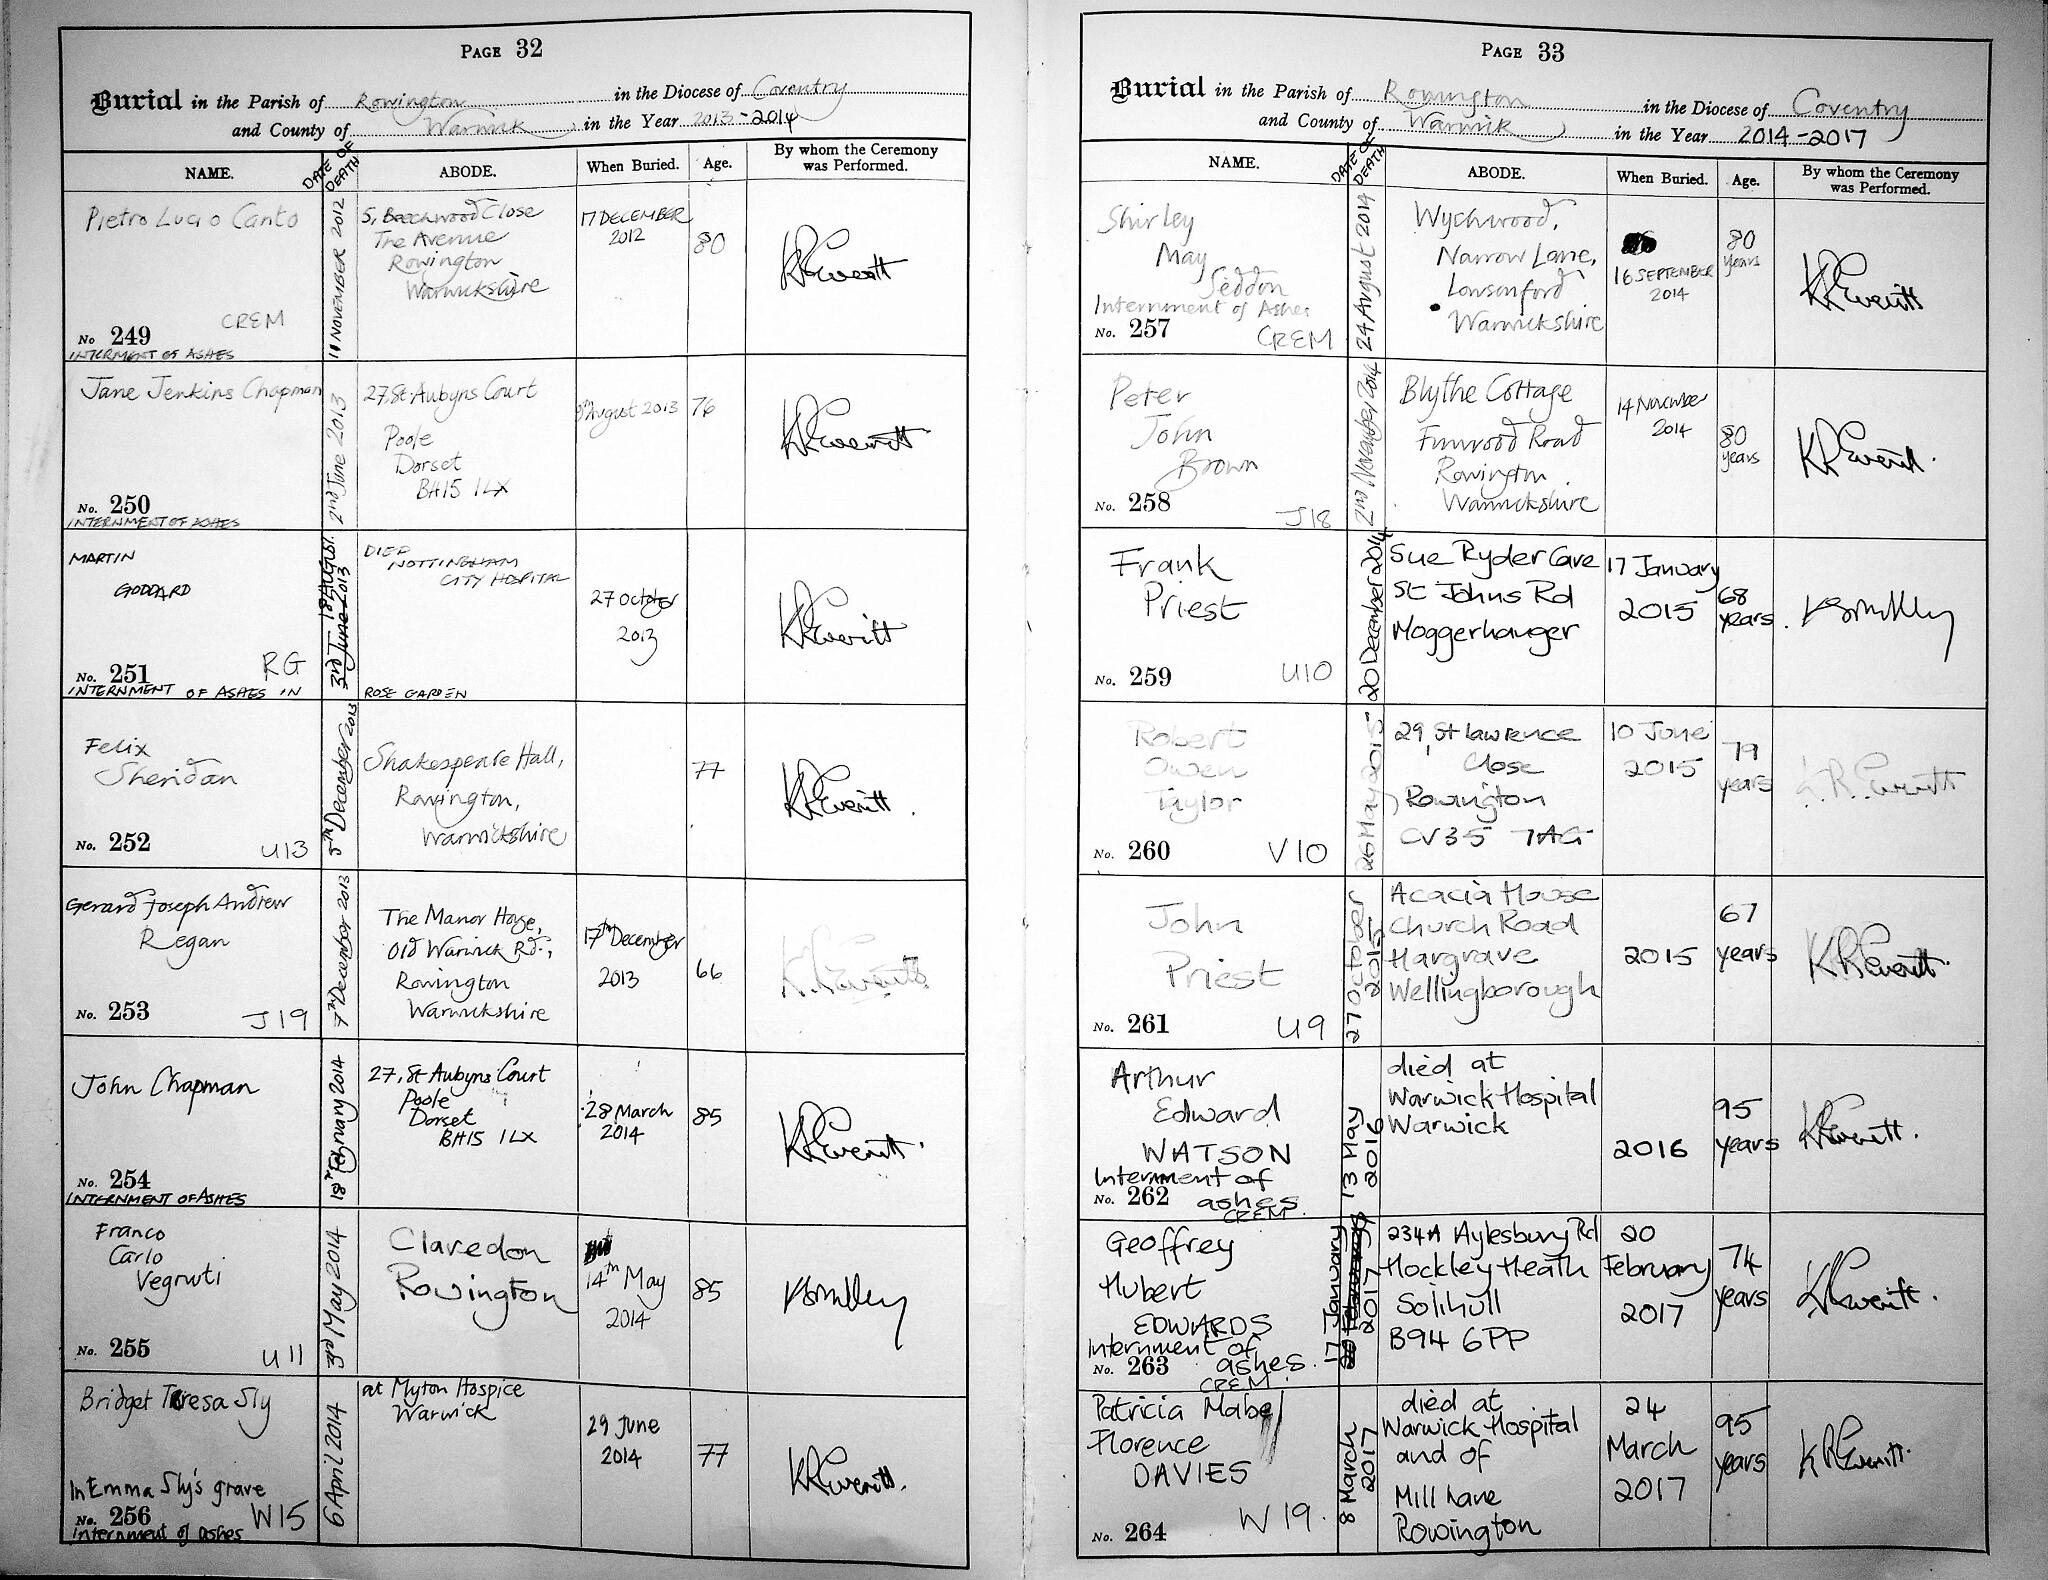 PAGE 32
Burial in the Parish of Rowington in the Diocese of Coventry
and County of Warwick in the Year 2013-2014
NAME.
DATE OF DEATH
ABODE.
When Buried.
Age.
By whom the Ceremony
was Performed.
Pietro Lucio Canto
CREM
No 249
INTERMENT OF ASHES
11 NOVEMBER 2012
5, Beechwood Close
The Avenue
Rowington
Warwickshire
17 DECEMBER
2012
80
KR Everitt
Jane Jenkins Chapman
No. 250
INTERNMENT OF ASHES
2nd June 2013
27, St Aubyns Court
Poole
Dorset
BH15 1LX
August 2013
76
KR Everitt
MARTIN
GODDARD
RG
No. 251
INTERNMENT OF ASHES IN ROSE GARDEN
18 AUGUST.
3rd June 2013
DIED
NOTTINGHAM
CITY HOSPITAL
27 October
2013
KR Everitt
Felix
Sheridan
No. 252
U13
5th December 2013
Shakespeare Hall,
Rowington,
Warwickshire
77
KR Everitt.
Gerard Joseph Andrew
Regan
No. 253
J19
7th December 2013
The Manor House,
Old Warwick Rd.,
Rowington
Warwickshire
17th December
2013
66
K.R. Everitt
John Chapman
No. 254
INTERNMENT OF ASHES
18th February 2014
27, St Aubyns Court
Poole
Dorset
BH15 1LX
28 March
2014
85
KR Everitt.
Franco
Carlo
Vegnuti
No. 255
U11
3rd May 2014
Claredon
Rowington
14th May
2014
85
Bridget Teresa Sly
In Emma Sly's grave
No. 256
W15
Internment of ashes
6 April 2014
at Myton Hospice
Warwick
29 June
2014
77
KR Everitt.
PAGE 33
Burial in the Parish of Rowington in the Diocese of Coventry
and County of Warwick in the Year 2014-2017
NAME.
DATE OF DEATH
ABODE.
When Buried.
Age.
By whom the Ceremony
was Performed.
Shirley
May
Seddon
Internment of Ashes
No. 257
CREM
24 August 2014
Wychwood,
Narrow Lane,
Lowsonford
Warwickshire
16 SEPTEMBER
2014
80
years
KR Everitt
Peter
John
Brown
No. 258
J18
2nd November 2014
Blythe Cottage
Finwood Road
Rowington
Warwickshire
14 November
2014
80
years
KR Everitt.
Frank
Priest
No. 259
U10
20 December 2014
Sue Ryder Care
St Johns Rd
Moggerhanger
17 January
2015
68
years.
Robert
Owen
Taylor
No. 260
V10
26 May 2015
29, St Lawrence
Close
Rowington
CV35 7AG
10 June
2015
79
years
K.R. Everitt
John
Priest
No. 261
U9
27 October
2015
Acacia House
Church Road
Hargrave
Wellingborough
2015
67
years
KR Everitt.
Arthur
Edward
WATSON
Internment of
No. 262 ashes
CREM.
13 May
2016
died at
Warwick Hospital
Warwick
2016
95
years
KR Everitt.
Geoffrey
Hubert
EDWARDS
Internment of
No. 263 ashes.
CREM.
17 January
2017
234A Aylesbury Rd
Hockley Heath
Solihull
B94 6PP
20
February
2017
74
years
KR Everitt.
Patricia Mabel
Florence
DAVIES
No. 264
W19.
8 March
2017
died at
Warwick Hospital
and of
Mill Lane
Rowington
24
March
2017
95
years
KR Everitt.